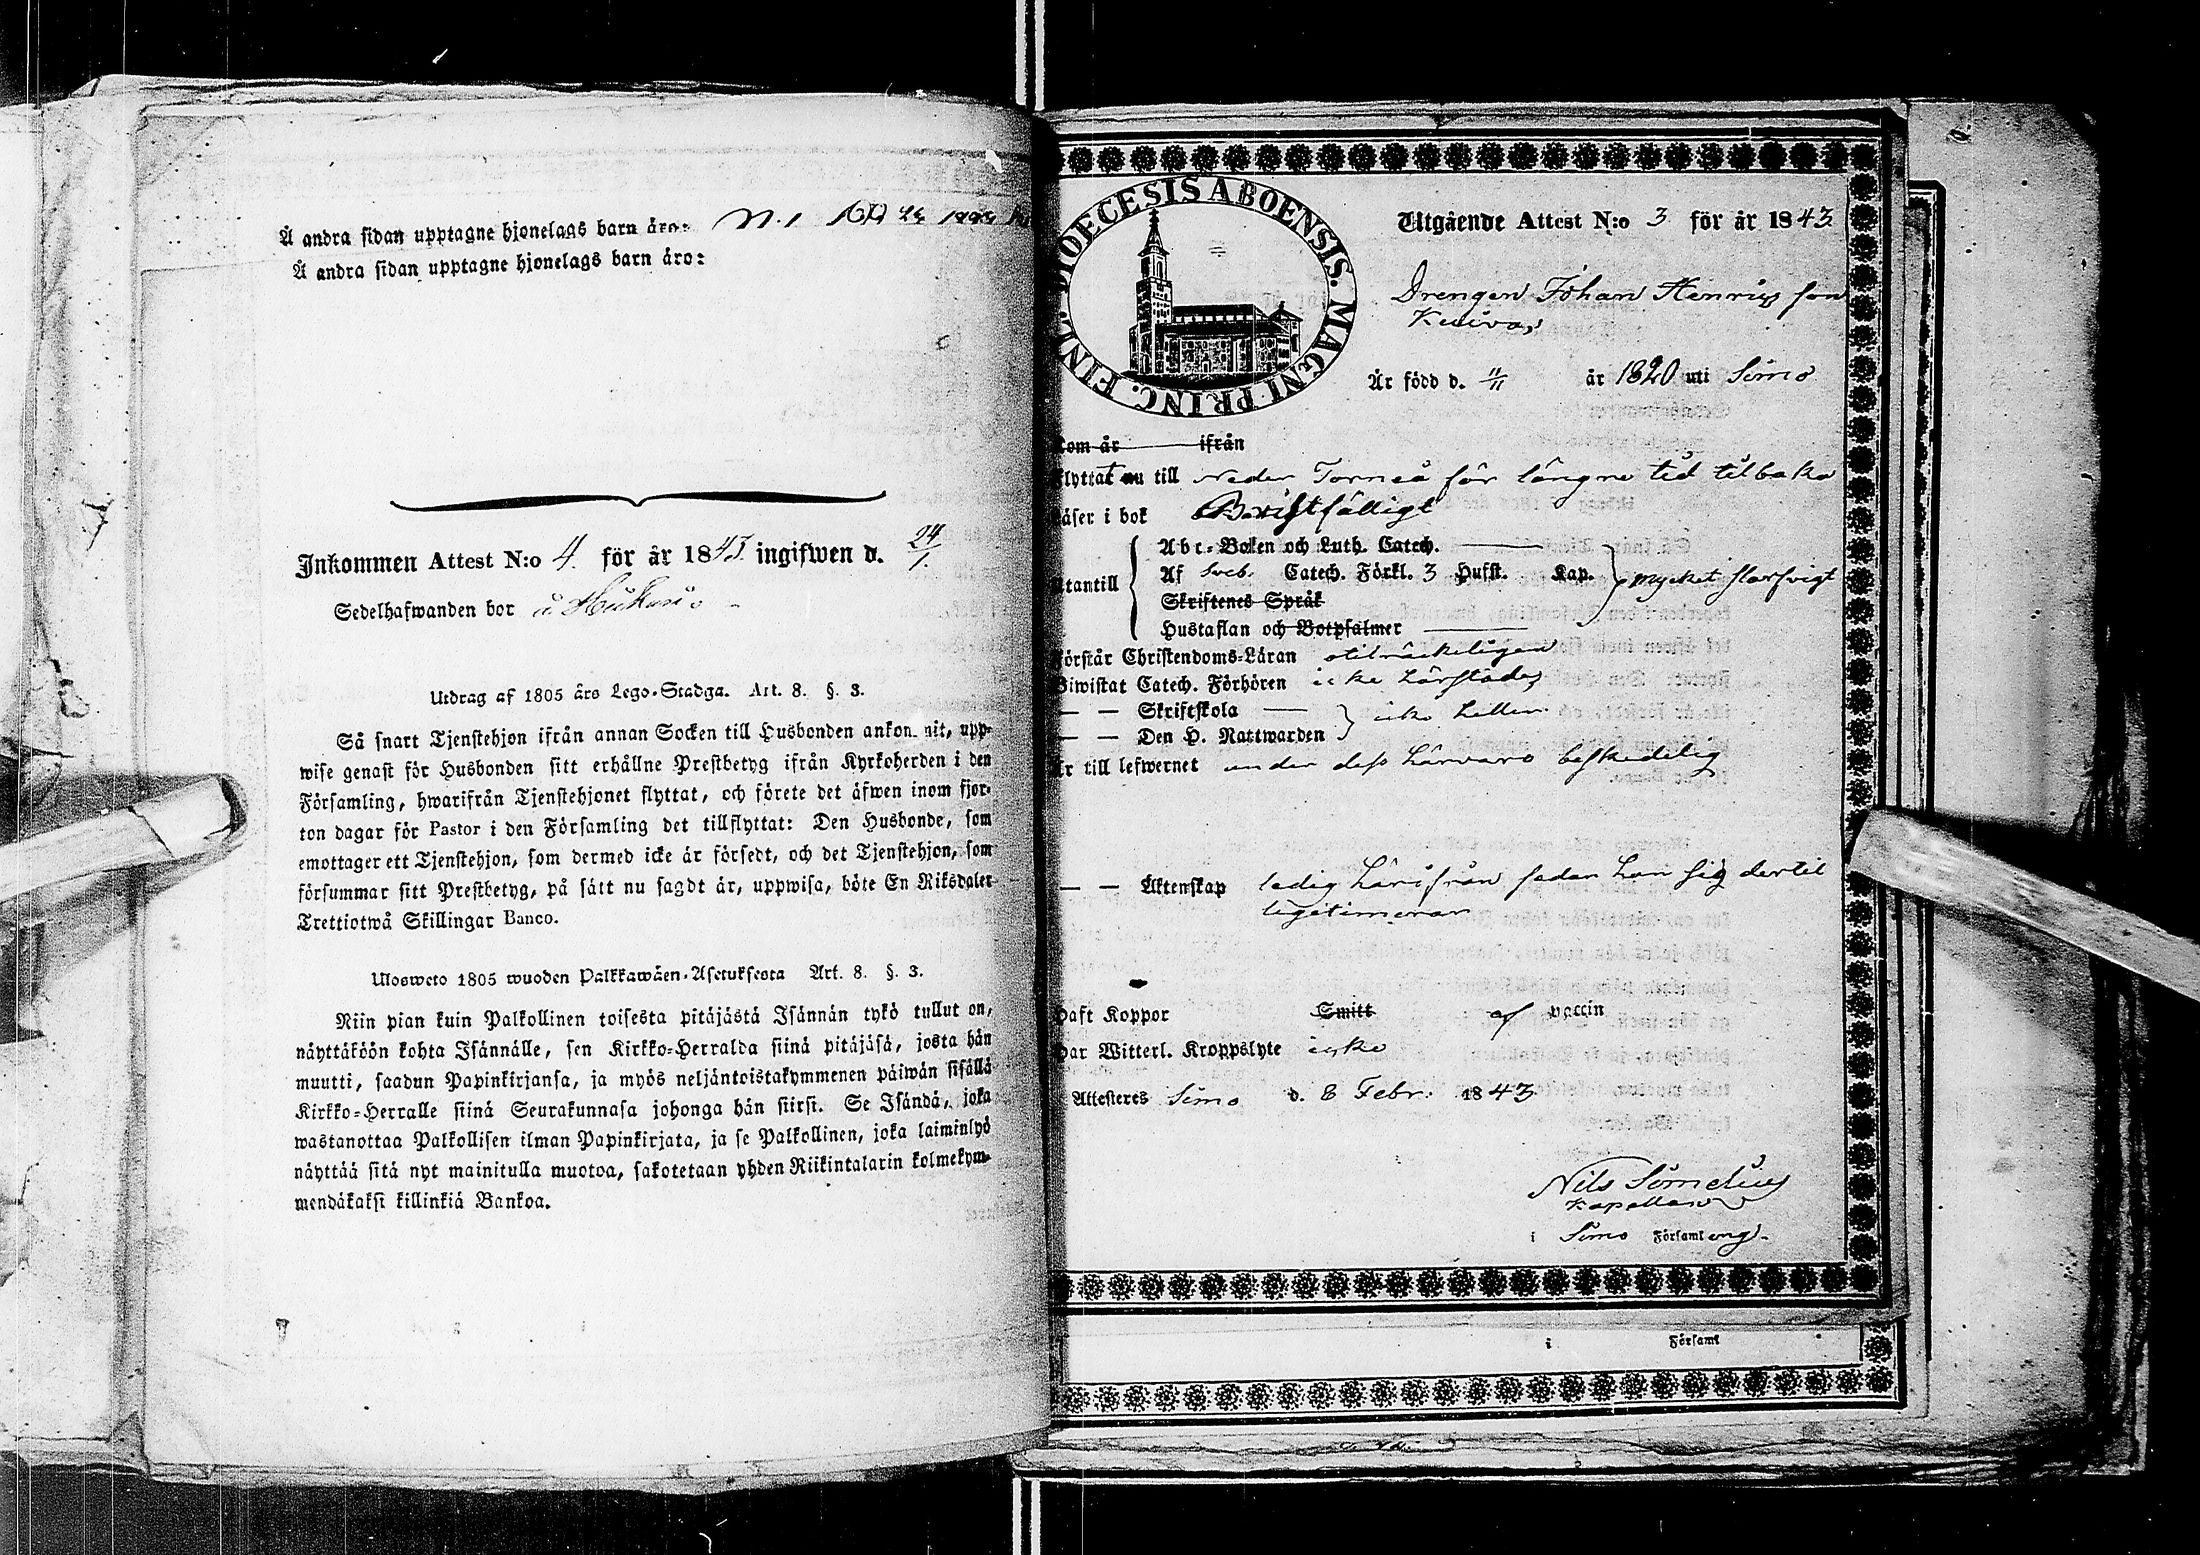 Å andra sidan upptagne hjonelags barn äro: N. 1
Å andra sidan upptagne hjonelags barn äro:
Inkommen Attest N:o 4. för år 1843. ingifwen d. 24/1.
Sedelhafwanden bor å
Utdrag af 1805 års Lego-Stadga. Art. 8. §. 3.
Så snart Tjenstehjon ifrån annan Socken till Husbonden ankommit, upp-
wise genast för Husbonden sitt erhållne Prestbetyg ifrån Kyrkoherden i den
Församling, hwarifrån Tjenstehjonet flyttat, och förete det äfwen inom fjor-
ton dagar för Pastor i den Församling det tillflyttat: Den Husbonde, som
emottager ett Tjenstehjon, som dermed icke är försedt, och det Tjenstehjon, som
försummar sitt Prestbetyg, på sätt nu sagdt är, uppwisa, böte En Riksdaler
Trettiotwå Skillingar Banco.
Ulosweto 1805 wuoden Palkkawäen-Asetuksesta Art. 8. §. 3.
Niin pian kuin Palkollinen toisesta pitäjästä Isännän tykö tullut on,
näyttäköön kohta Isännälle, sen Kirkko-Herralda siinä pitäjäsä, josta hän
muutti, saadun Papinkirjansa, ja myös neljäntoistakymmenen päiwän sisällä
Kirkko-Herralle siinä Seurakunnasa johonga hän siirsi. Se Isändä, joka
wastanottaa Palkollisen ilman Papinkirjata, ja se Palkollinen, joka laiminlyö
näyttää sitä nyt mainitulla muotoa, sakotetaan yhden Riikintalarin kolmekym-
mendäkaksi killinkiä Bankoa.
DIOECESIS ABOENSIS. MAGNI PRINC. FINL.
Utgående Attest N:o 3 för år 1843.
Drengen Johan Henricsson
Keuvas
Är född d. 11/11 år 1820 uti Simo
Kom år ifrån
Flyttat nu till Neder Torneå för längre tid tilbaka
Läser i bok Bristfälligt
Utantill
Abc-Boken och Luth. Catech.
Af Sveb. Catech. Förkl. 3 Hufst. Kap.
mycket slarfvigt
Skriftenes Språk
Hustaflan och Botpsalmer
Förstår Christendoms-Läran otilräckeligen
Biwistat Catech. Förhören icke härstädes
— — Skriftskola
icke heller
— — Den H. Nattwarden
Är till lefwernet under dess härvaro beskedelig
— — Äktenskap ledig härifrån sedan han sig dertil
legitimerar
Haft Koppor Smitt af vaccin
Har Witterl. Kroppslyte icke
Attesteres Simo d. 8 Febr. 1843
Nils Simelius
Kapellan
i Simo Församleng.
i Församl